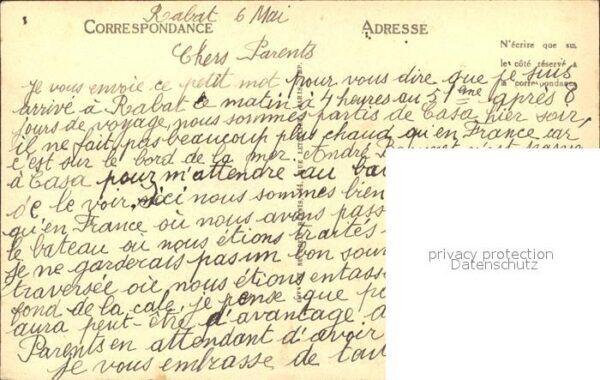 Rabat 6 Mai
CORRESPONDANCE ADRESSE
Chers Parents
N'écrire que sur
le côté réservé à
la correspondance
Je vous envoie ce petit mot pour vous dire que je suis
arrivé à Rabat ce matin à 4 heures au 31ème après 8
jours de voyage, nous sommes partis de Casa hier soir,
il ne fait pas beaucoup plus chaud qu'en France car
c'est sur le bord de la mer. André
à Casa pour m'attendre au
de le voir, ici nous sommes bien
qu'en France où nous avons
le bateau où nous étions traités
je ne garderais pas un bon
traversée où nous étions
fond de la cale, je pense que
aura peut-être d'avantage
Parents en attendant d'avoir
je vous embrasse de
privacy protection
Datenschutz